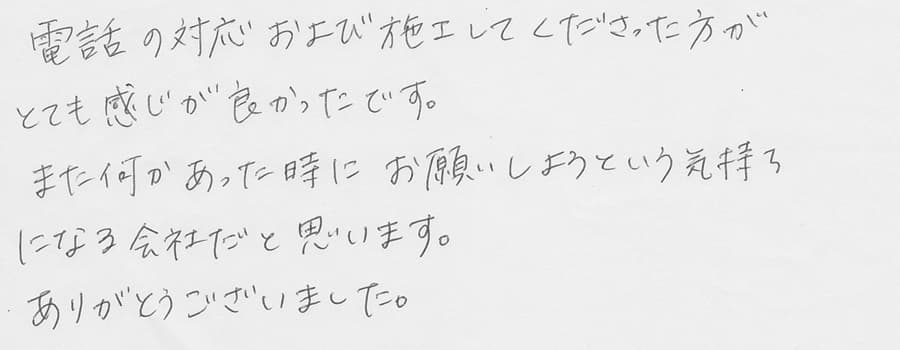 電話の対応および施工してくださった方が
とても感じが良かったです。
また何かあった時にお願いしようという気持ち
になる会社だと思います。
ありがとうございました。